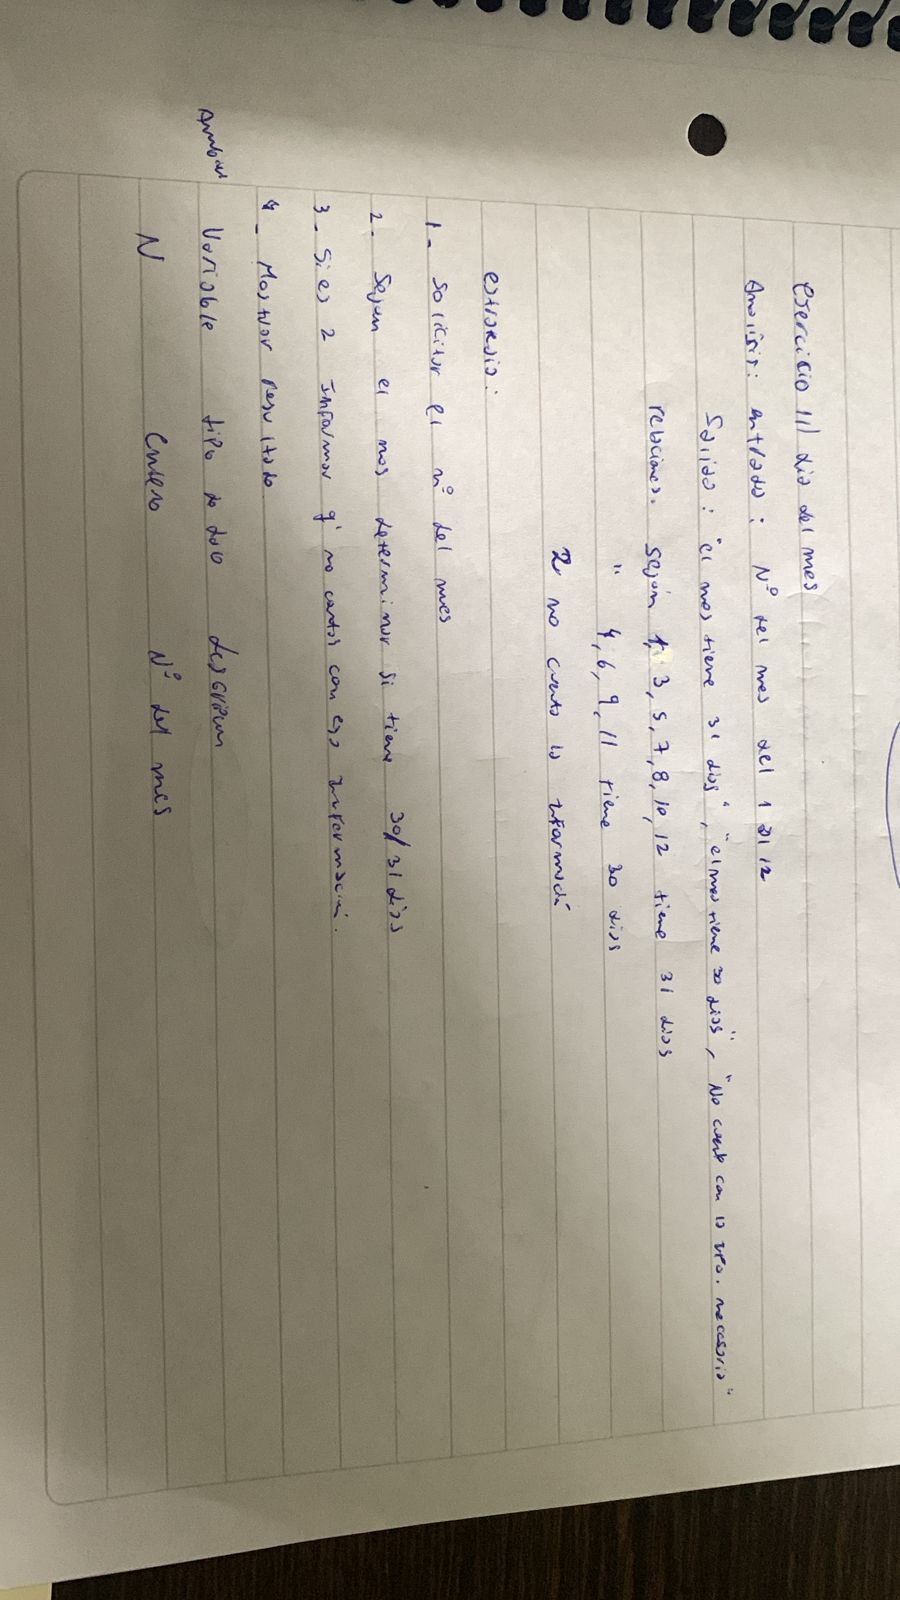 Ejercicio 11) dia del mes
Analisis: entrada: Nº del mes del 1 al 12
Salida: "el mes tiene 31 dias", "el mes tiene 30 dias", "No cuento con la necesaria"
relaciones. Según 1, 3, 5, 7, 8, 10, 12 tiene 31 dias
" 4, 6, 9, 11 tiene 30 dias
2 no cuento la
estrategia:
1- Solicitar el nº del mes
2- Según el mes determinar si tiene 30/31 dias
3- Si es 2 Informar q' no cantos con esa información.
4- Mostrar resultado
Ambiente
Variable tipo de dato
N Entero Nº del mes